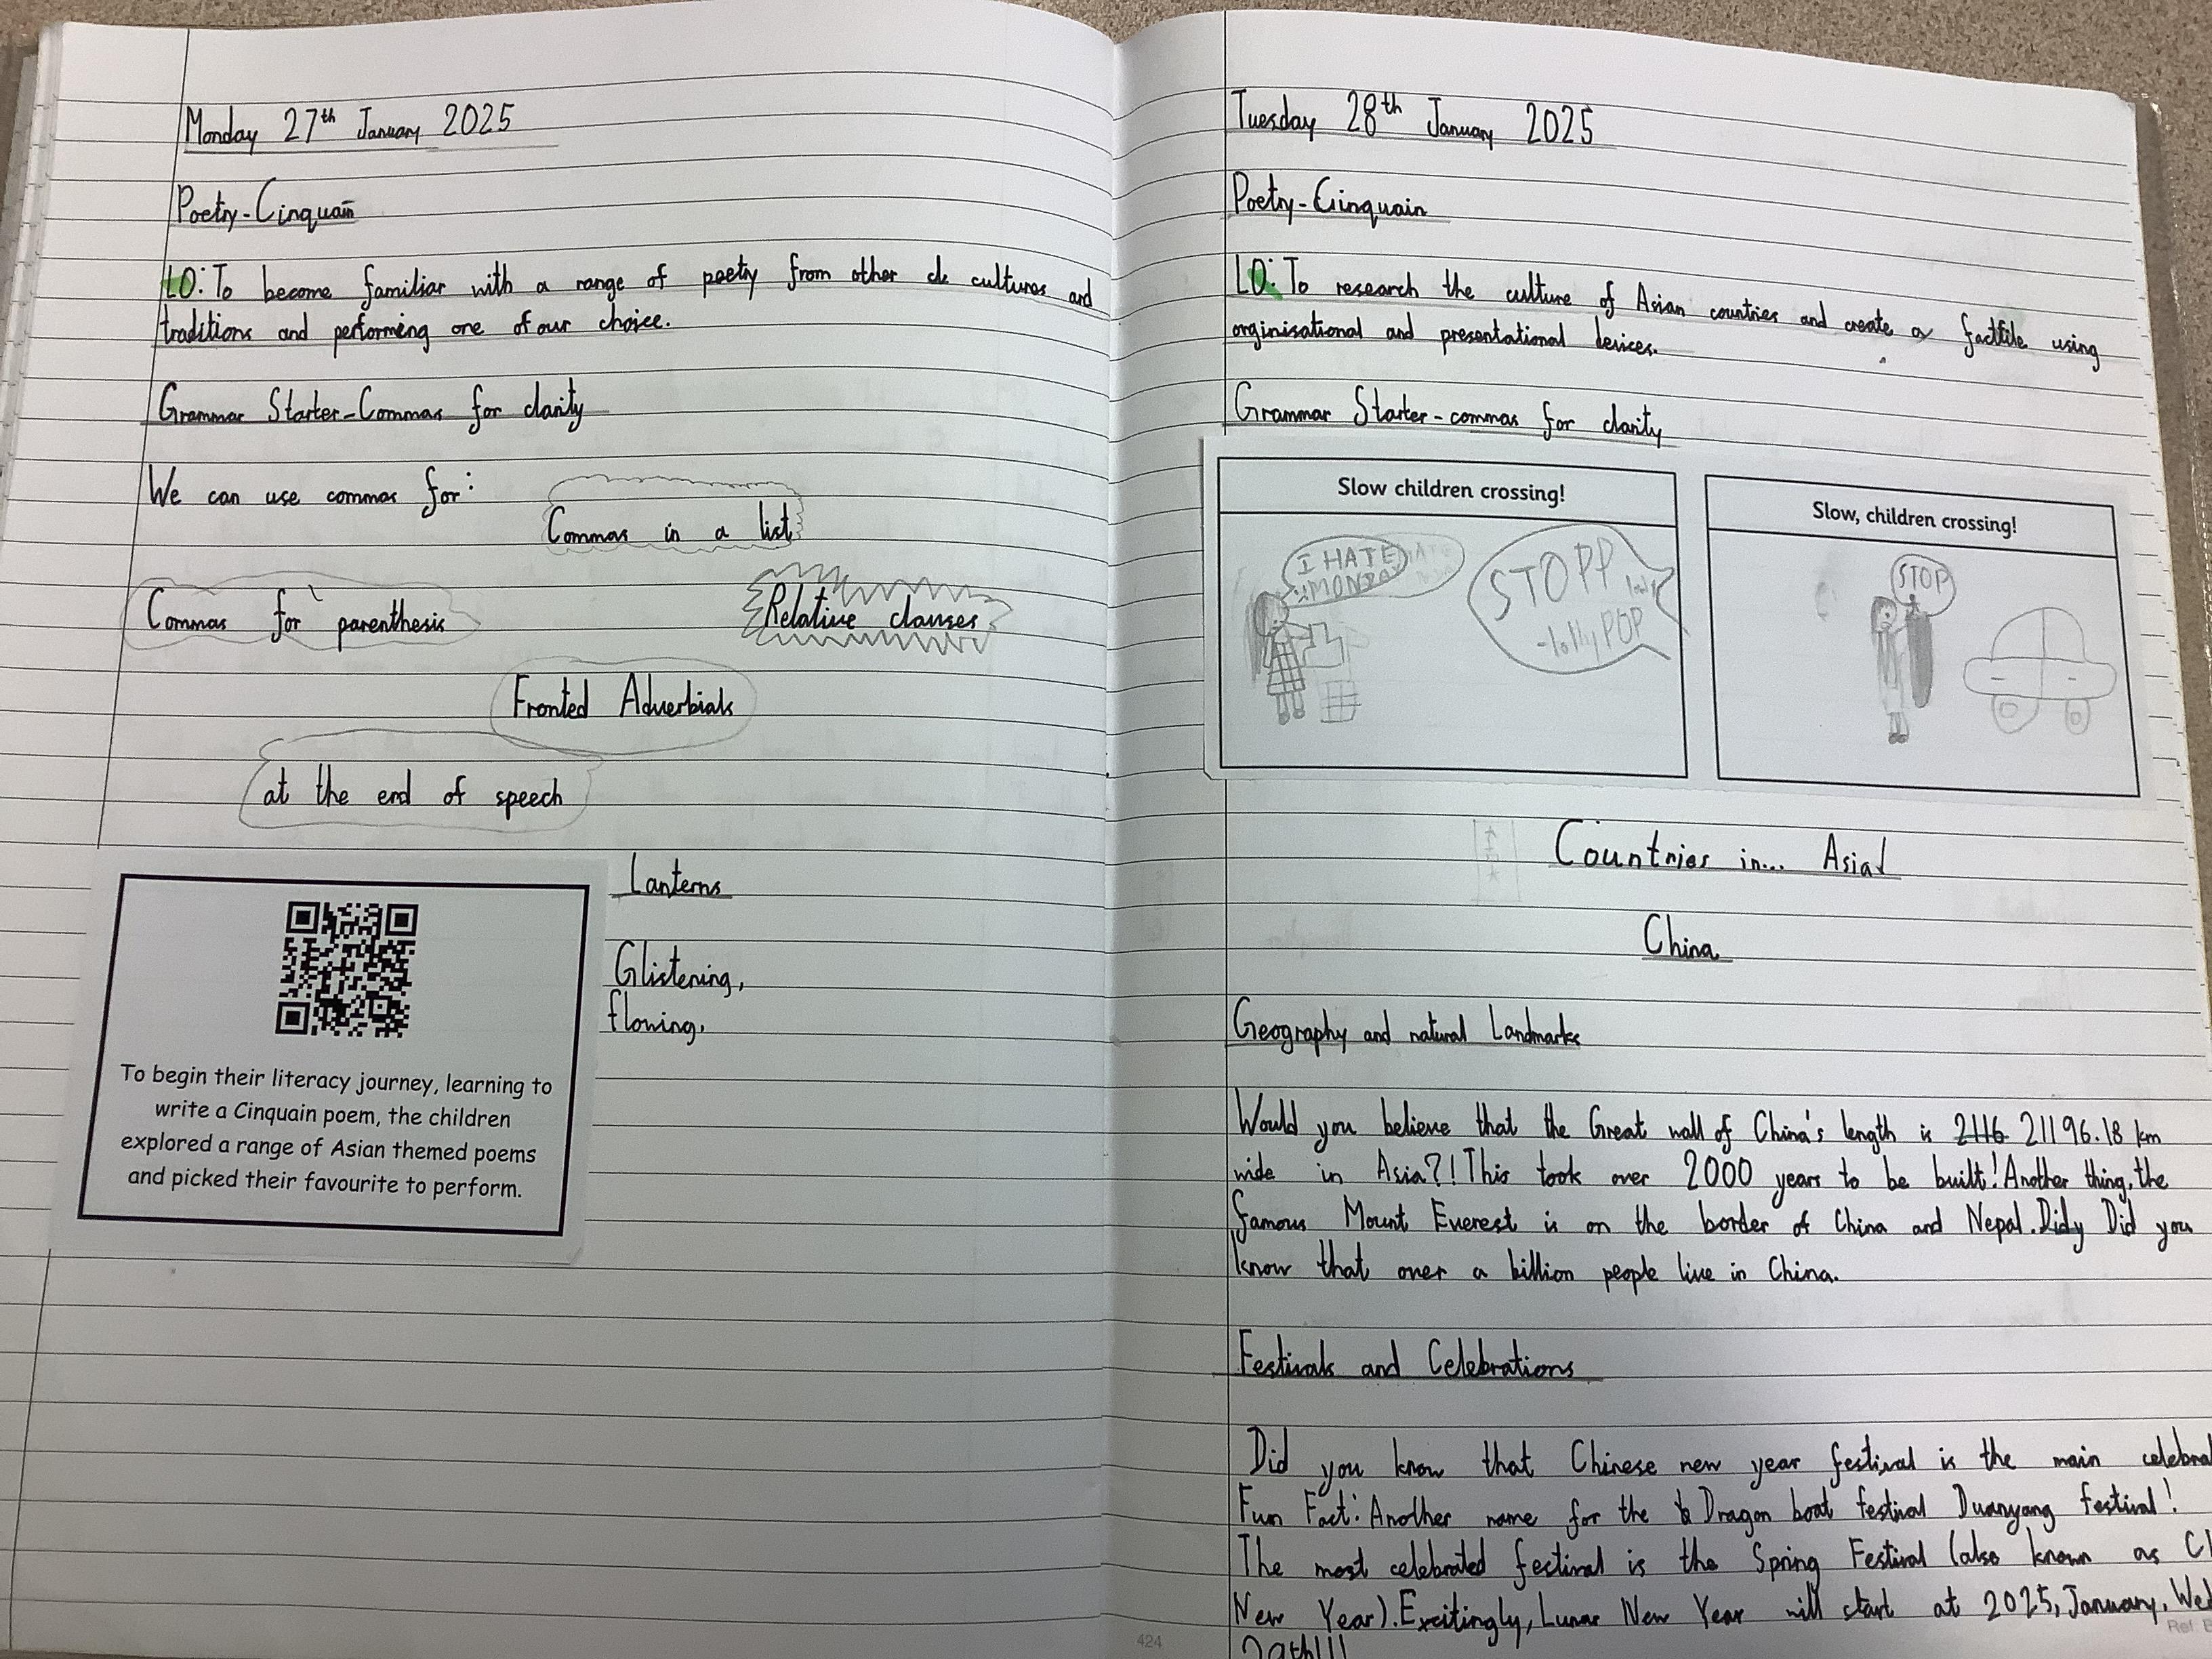 Monday 27th January 2025
Poetry-Cinquain
LO: To become familiar with a range of poetry from other cultures and
traditions and performing one of our choice.
Grammar Starter-Commas for clarity
We can use commas for:
Commas in a list
Commas for parenthesis
Relative clauses
Fronted Adverbials
at the end of speech
Lanterns
Glistening,
flowing,
To begin their literacy journey, learning to
write a Cinquain poem, the children
explored a range of Asian themed poems
and picked their favourite to perform.
424
Tuesday 28th January 2025
Poetry-Cinquain
LO: To research the culture of Asian countries and create a factfile using
orginisational and presentational devices.
Grammar Starter-commas for clarity
Slow children crossing!
I HATE
MONDAY
STOPP
-lollyPOP
Slow, children crossing!
STOP
Countries in... Asia!
China
Geography and natural Landmarks
Would you believe that the Great wall of China's length is 2116 21196.18 km
wide in Asia?! This took over 2000 years to be built! Another thing, the
famous Mount Everest is on the border of China and Nepal. Didy Did you
know that over a billion people live in China.
Festivals and Celebrations
Did you know that Chinese new year festival is the main celebra
Fun Fact: Another name for the Dragon boat festival Duanyang festival!
The most celebrated festival is the Spring Festival (also known as C
New Year). Excitingly, Lunar New Year will start at 2025, January, Wed
29th!!!
Ref